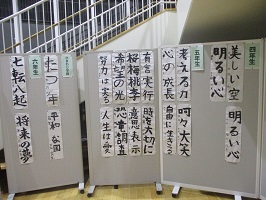 四年生
美しい空
明るい心
明るい心
五年生
考える力
心の成長
呵々大笑
自由に生きる
有言実行
桜梅桃李
希望の光
努力は実る
時を大切に
意思表示
恐竜調査
人生は愛
たつ年
平和な国
六年生
七転八起
将来の夢